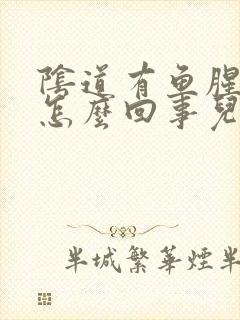 陰道有魚腥
怎麼回事兒
半城繁華煙半